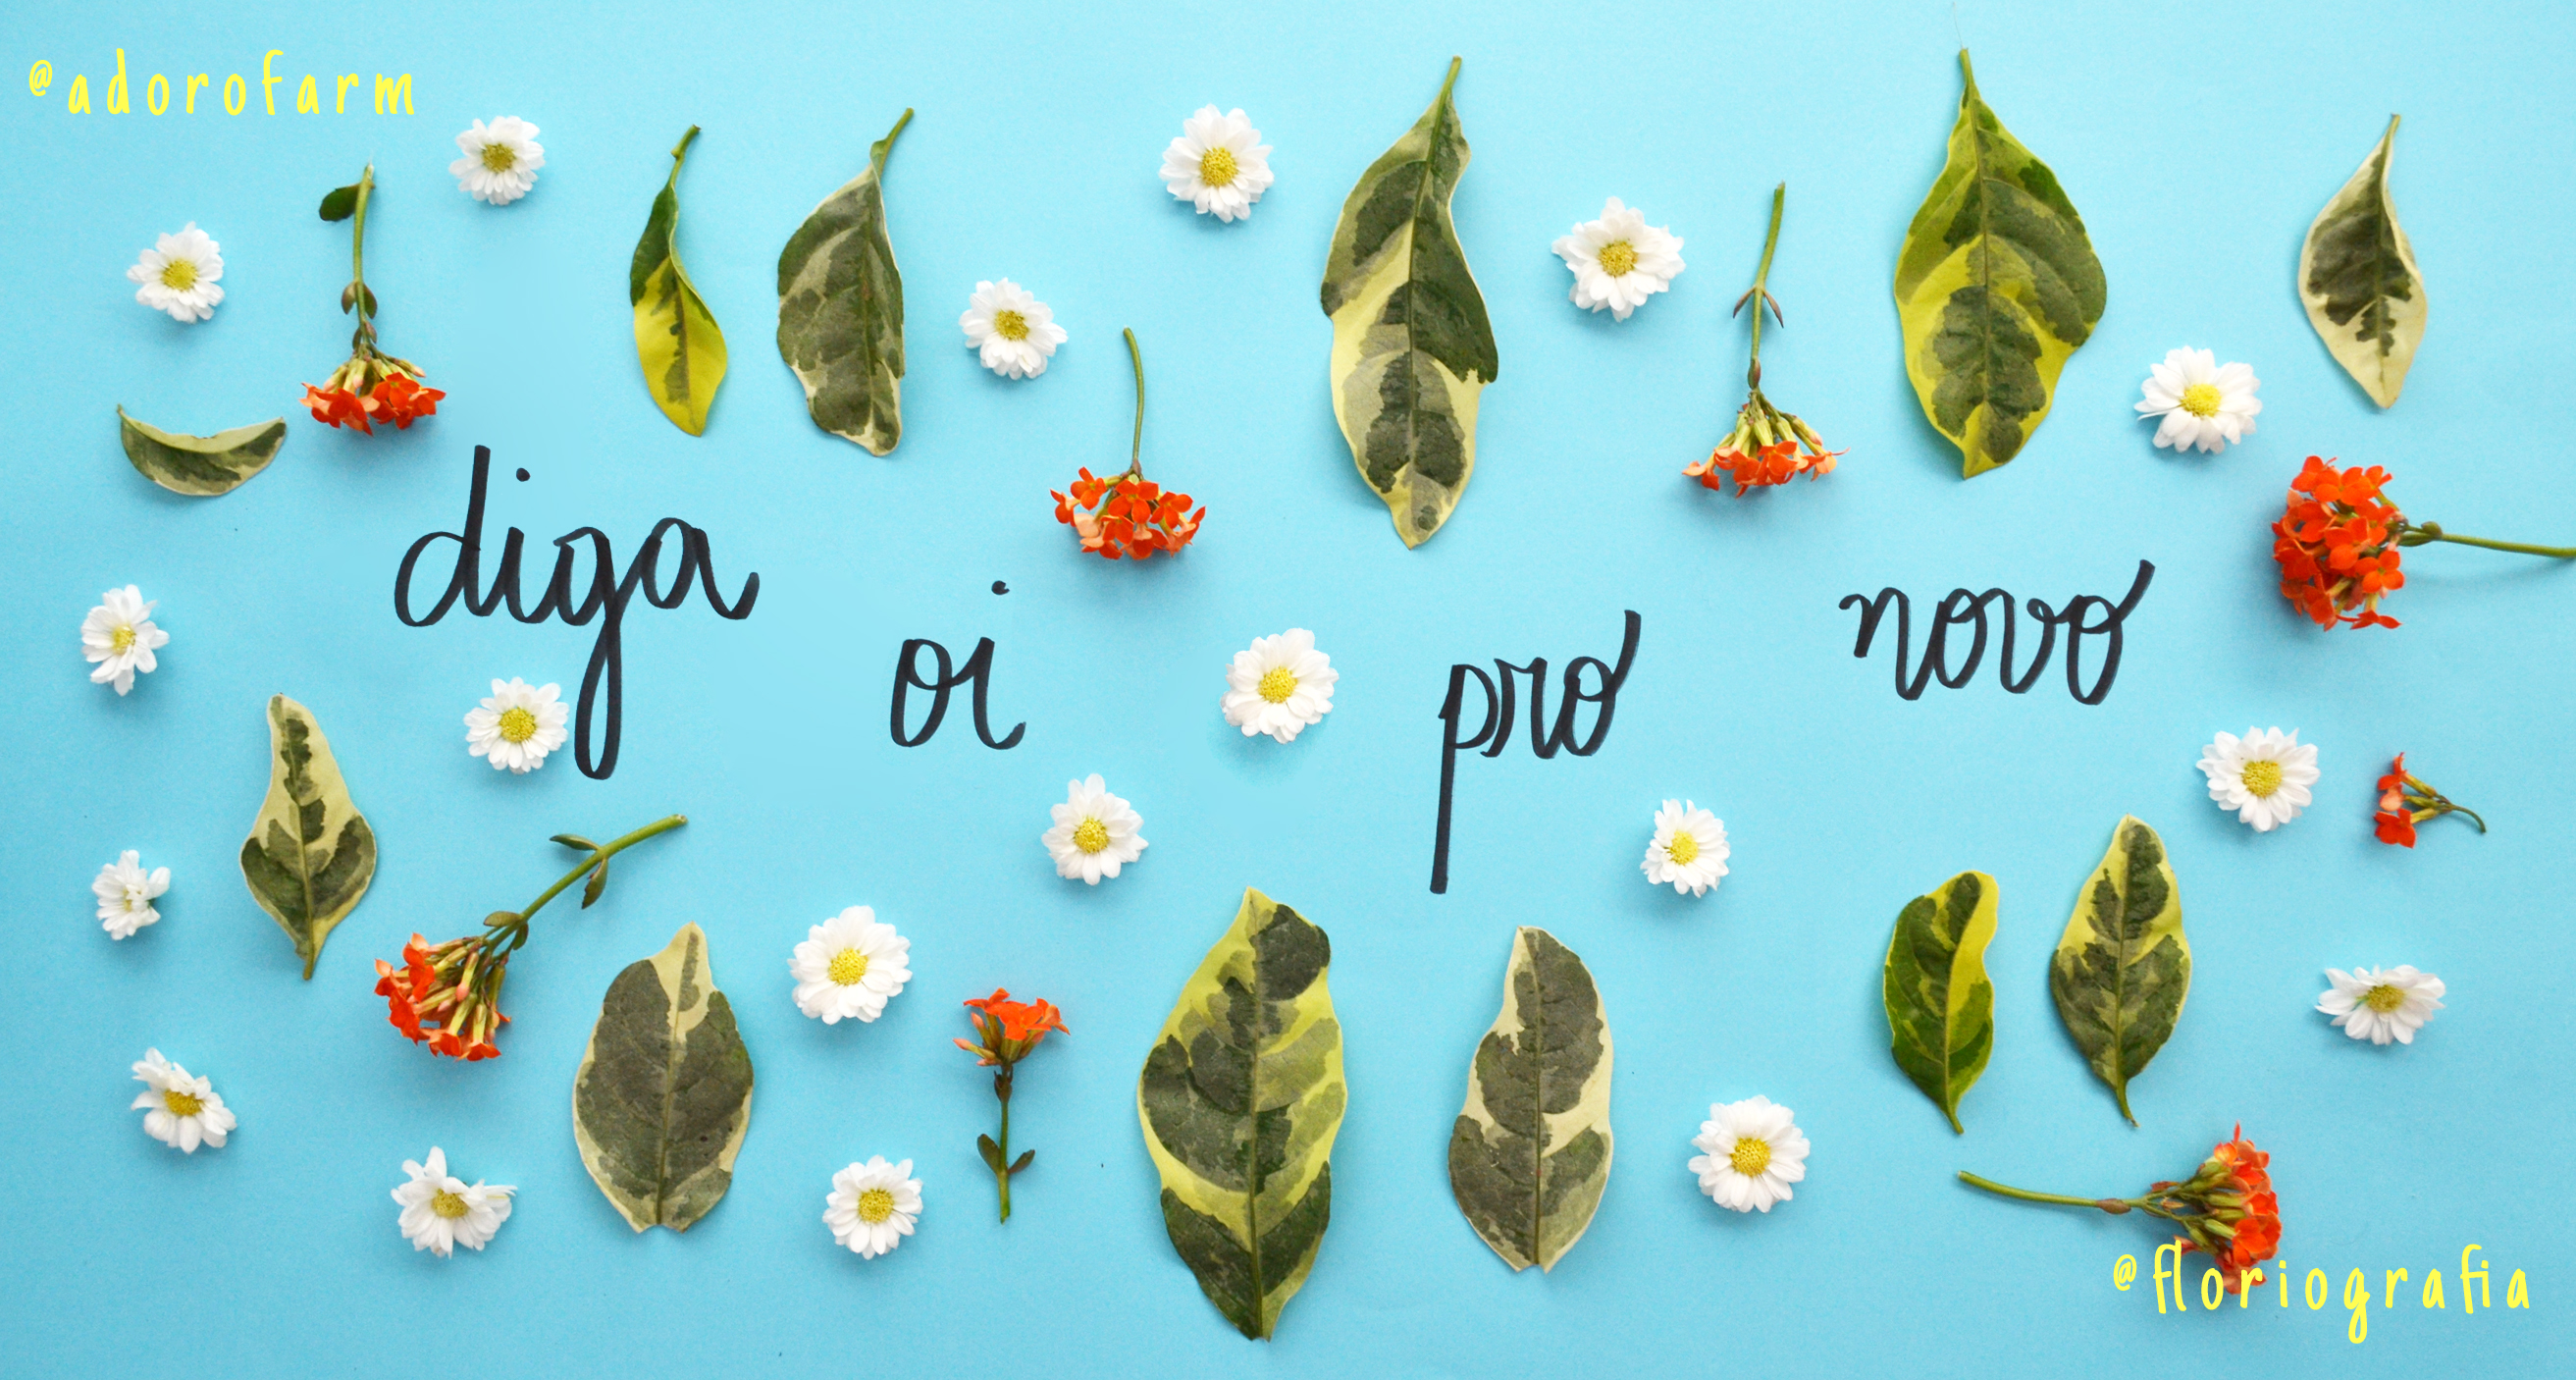 @adorofarm
diga oi pro novo
@floriografia